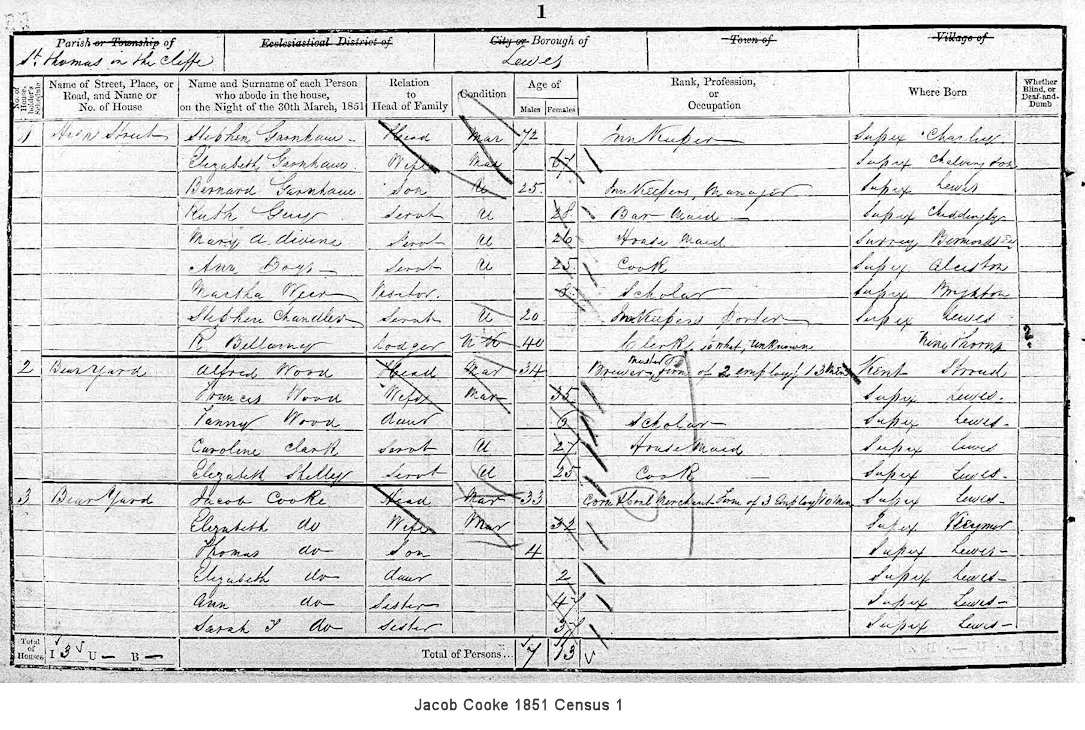 1
Parish or Township of Ecclesiastical District of City or Borough of Town of Village of
St. Thomas in the Cliffe Lewes
No. of House-holder's Schedule Name of Street, Place, or Road, and Name or No. of House Name and Surname of each Person who abode in the house, on the Night of the 30th March, 1851 Relation to Head of Family Condition Age of Males Females Rank, Profession, or Occupation Where Born Whether Blind, or Deaf-and-Dumb
1 Street Stephen Garnham Head Mar 72 Inn Keeper Sussex Chailey
Elizabeth Garnham Wife Mar 67 Sussex Chalvington
Bernard Garnham Son U 25 Inn Keepers Manager Sussex Lewes
Ruth Guy Servt U 28 Bar Maid Sussex Chiddingly
Mary A. Divine Servt U 26 House Maid Surrey Bermondsey
Ann Boys Servt U 25 Cook Sussex Alciston
Martha Weir Visitor 8 Scholar Sussex Brighton
Stephen Chandler Servt U 20 Inn Keepers Porter Sussex Lewes
R Bellamey Lodger N K 40 Clerk, to what, unknown ?
2 Bear Yard Alfred Wood Head Mar 34 Brewer Master firm of 2 employ 13 men Kent Stroud
Frances Wood Wife Mar 35 Sussex Lewes
Fanny Wood daur 6 Scholar Sussex Lewes
Caroline Clark Servt U 27 House Maid Sussex Lewes
Elizabeth Shelley Servt U 25 Cook Sussex Lewes
3 Bear Yard Jacob Cooke Head Mar 33 Corn & Coal Merchant Firm of 3 employ 10 Men Sussex Lewes
Elizabeth do Wife Mar 32 Sussex
Thomas do Son 4 Sussex Lewes
Elizabeth do daur 2 Sussex Lewes
Ann do Sister 45 Sussex Lewes
Sarah do Sister 37 Sussex Lewes
Total of Houses I 3 U – B – Total of Persons... 7 13
Jacob Cooke 1851 Census 1